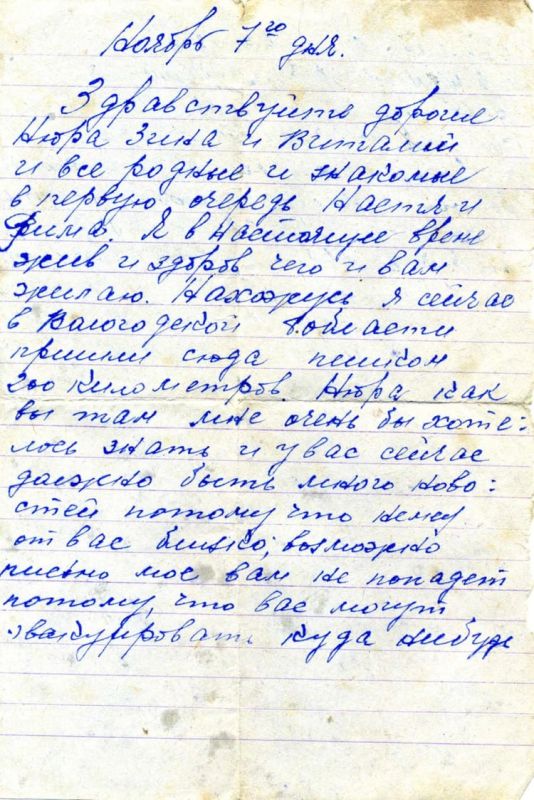 Ноябрь 7го дня.
Здравствуйте дорогие
Нюра Зина и Виталий
и все родные и знакомые
в первую очередь Настя и
Фима. Я в настоящие врене
жив и здоров чего и вам
желаю. Нахожусь я сейчас
в Вологодской области
пришли сюда пешком
200 километров. Нюра как
вы там мне очень бы хоте=
лось знать и у вас сейчас
должно быть много ново=
стей потому что
от вас близко, возможно
письмо мое вам не попадет
потому, что вас могут
эвакуировать куда нибудь